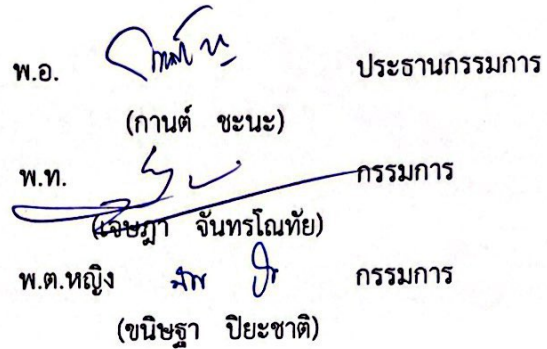 พ.อ. ประธานกรรมการ
(กานต์ ชะนะ)
พ.ท. กรรมการ
(เจษฎา จันทรโณทัย)
พ.ต.หญิง กรรมการ
(ขนิษฐา ปิยะชาติ)